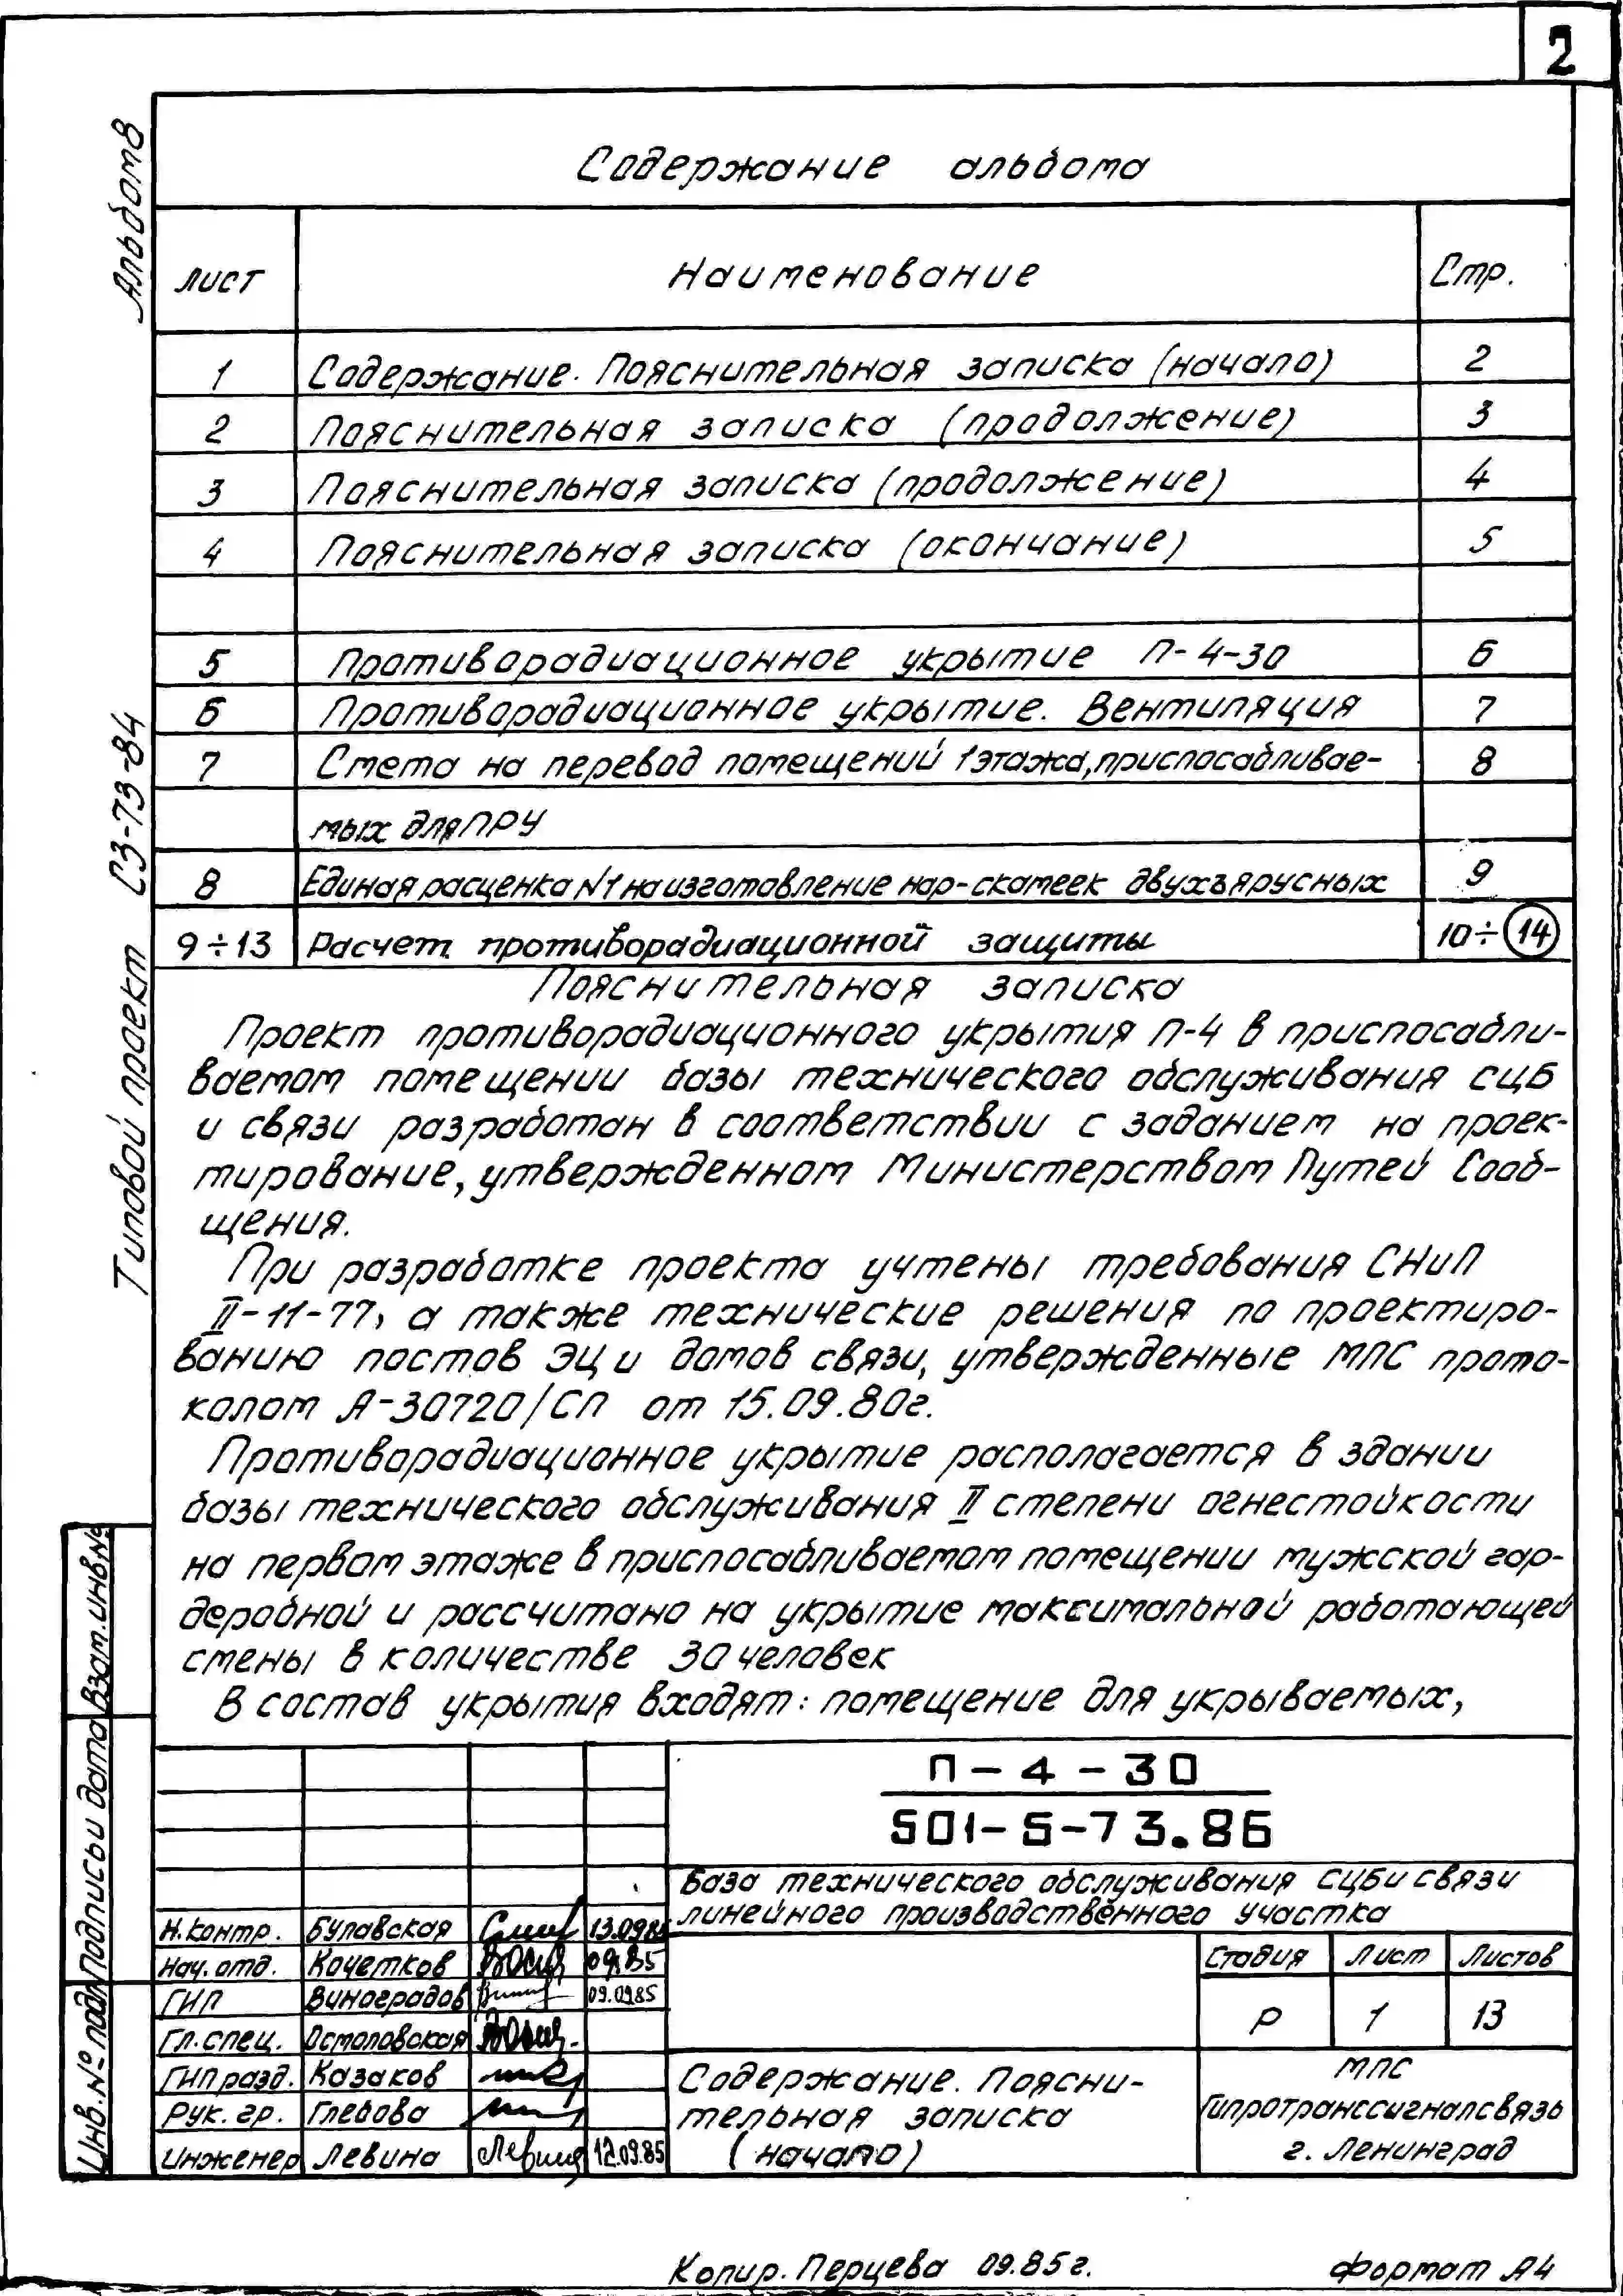 2
Альбом 8
Типовой проект СЗ-73-84
Содержание альбома
Лист Наименование Стр.
1 Содержание. Пояснительная записка (начало) 2
2 Пояснительная записка (продолжение) 3
3 Пояснительная записка (продолжение) 4
4 Пояснительная записка (окончание) 5
5 Противорадиационное укрытие П-4-30 6
6 Противорадиационное укрытие. Вентиляция 7
7 Смета на перевод помещений 1 этажа, приспосабливае- 8
мых для ПРУ
8 Единая расценка №1 на изготовление нар-скамеек двухъярусных 9
9÷13 Расчет противорадиационной защиты 10÷14
Пояснительная записка
Проект противорадиационного укрытия П-4 в приспосабли-
ваемом помещении базы технического обслуживания СЦБ
и связи разработан в соответствии с заданием на проек-
тирование, утвержденном Министерством Путей Сооб-
щения.
При разработке проекта учтены требования СНиП
II-11-77, а также технические решения по проектиро-
ванию постов ЭЦ и домов связи, утвержденные МПС прото-
колом А-30720/СП от 15.09.80г.
Противорадиационное укрытие располагается в здании
базы технического обслуживания II степени огнестойкости
на первом этаже в приспосабливаемом помещении мужской гар-
деробной и рассчитано на укрытие максимальной работающей
смены в количестве 30 человек
В состав укрытия входят: помещение для укрываемых,
Взам.инв.№
Подпись и дата
Инв.№ подл
П-4-30
501-5-73.86
База технического обслуживания СЦБ и связи
линейного производственного участка
Н.контр. Булавская 13.09.85
Нач. отд. Кочетков 09.85
ГИП Виноградов 09.09.85
Гл. спец. Остаповская
ГИП разд. Казаков
Рук. гр. Глебова
Инженер Левина Левина 12.09.85
Стадия Лист Листов
Р 1 13
Содержание. Поясни-
тельная записка
(начало)
МПС
Гипротранссигналсвязь
г. Ленинград
Копир. Перцева 09.85г. Формат А4